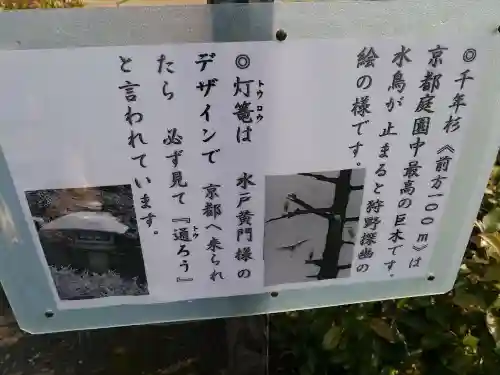 ◎千年杉《前方一００ｍ》は
京都庭園中最高の巨木です。
水鳥が 止まると狩野探幽の
絵の様です。
◎灯篭は 水戸黄門様の
トウロウ
デザインで 京都へ来られ
たら 必ず見て『通ろう』
トウ
と言われています。